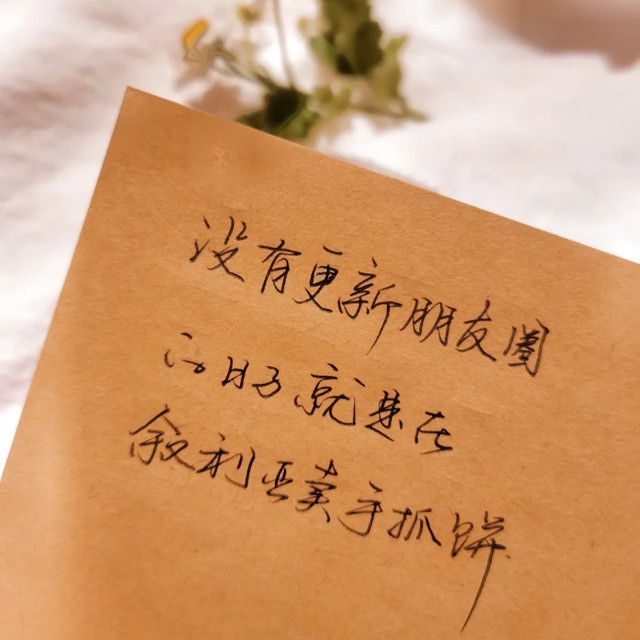 没有更新朋友圈
的日子就是在
叙利亚卖手抓饼